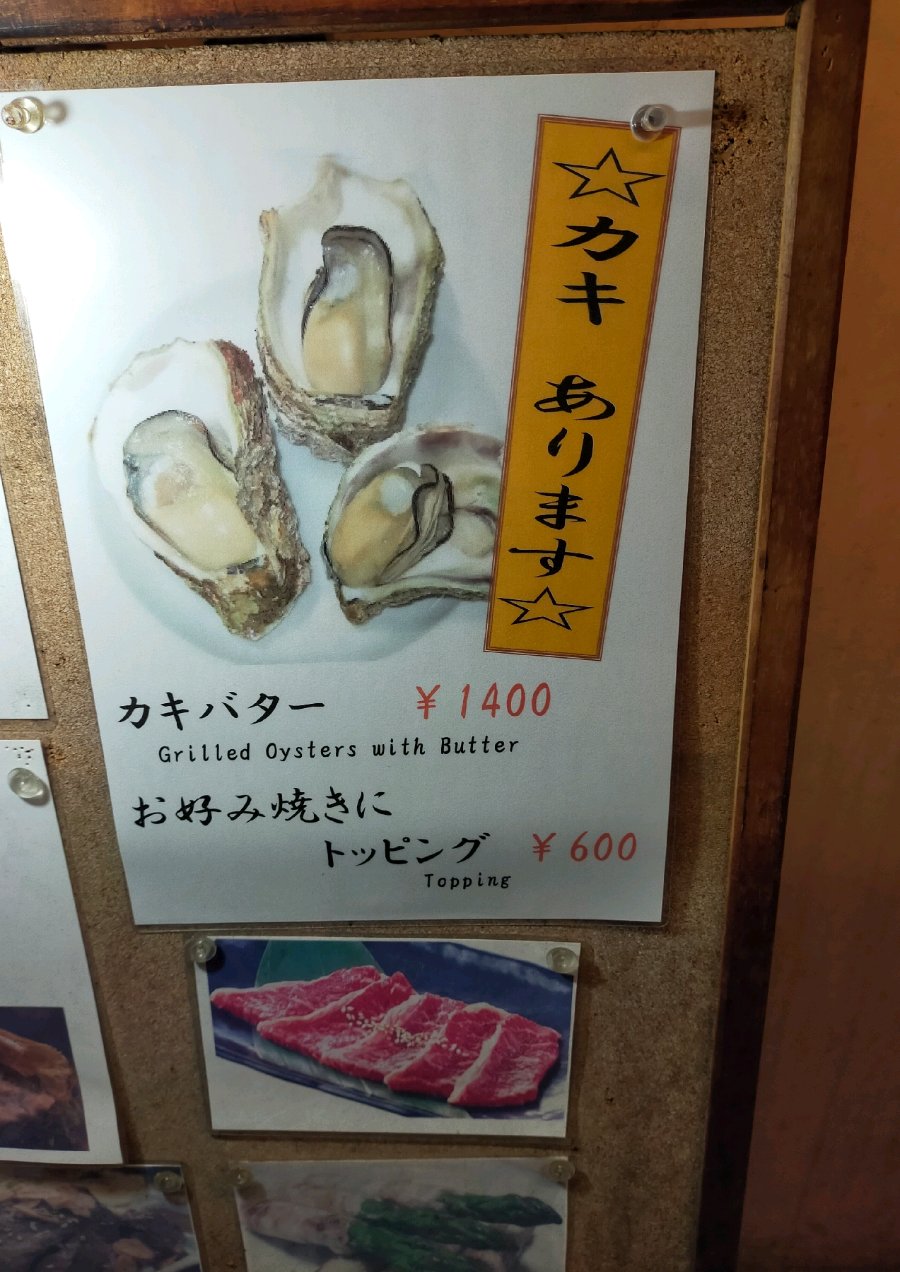 ☆カキ あります☆
カキバター ¥1400
Grilled Oysters with Butter
お好み焼きに
トッピング ¥600
Topping